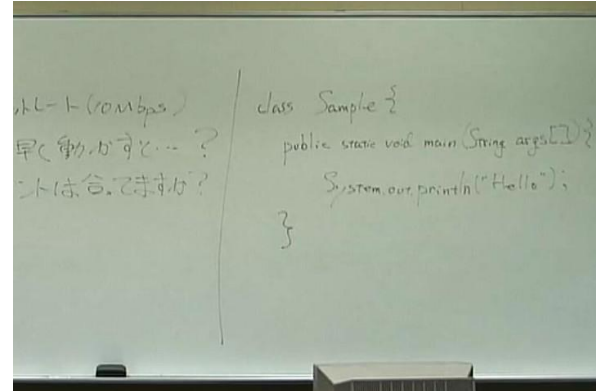 トレート(10Mbps)
早く動かすと…?
ントは合ってますか?
class Sample {
public static void main (String args[]) {
System.out.println("Hello");
}